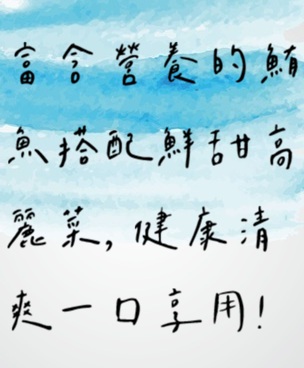 富含營養的鮪
魚搭配鮮甜高
麗菜,健康清
爽一口享用!